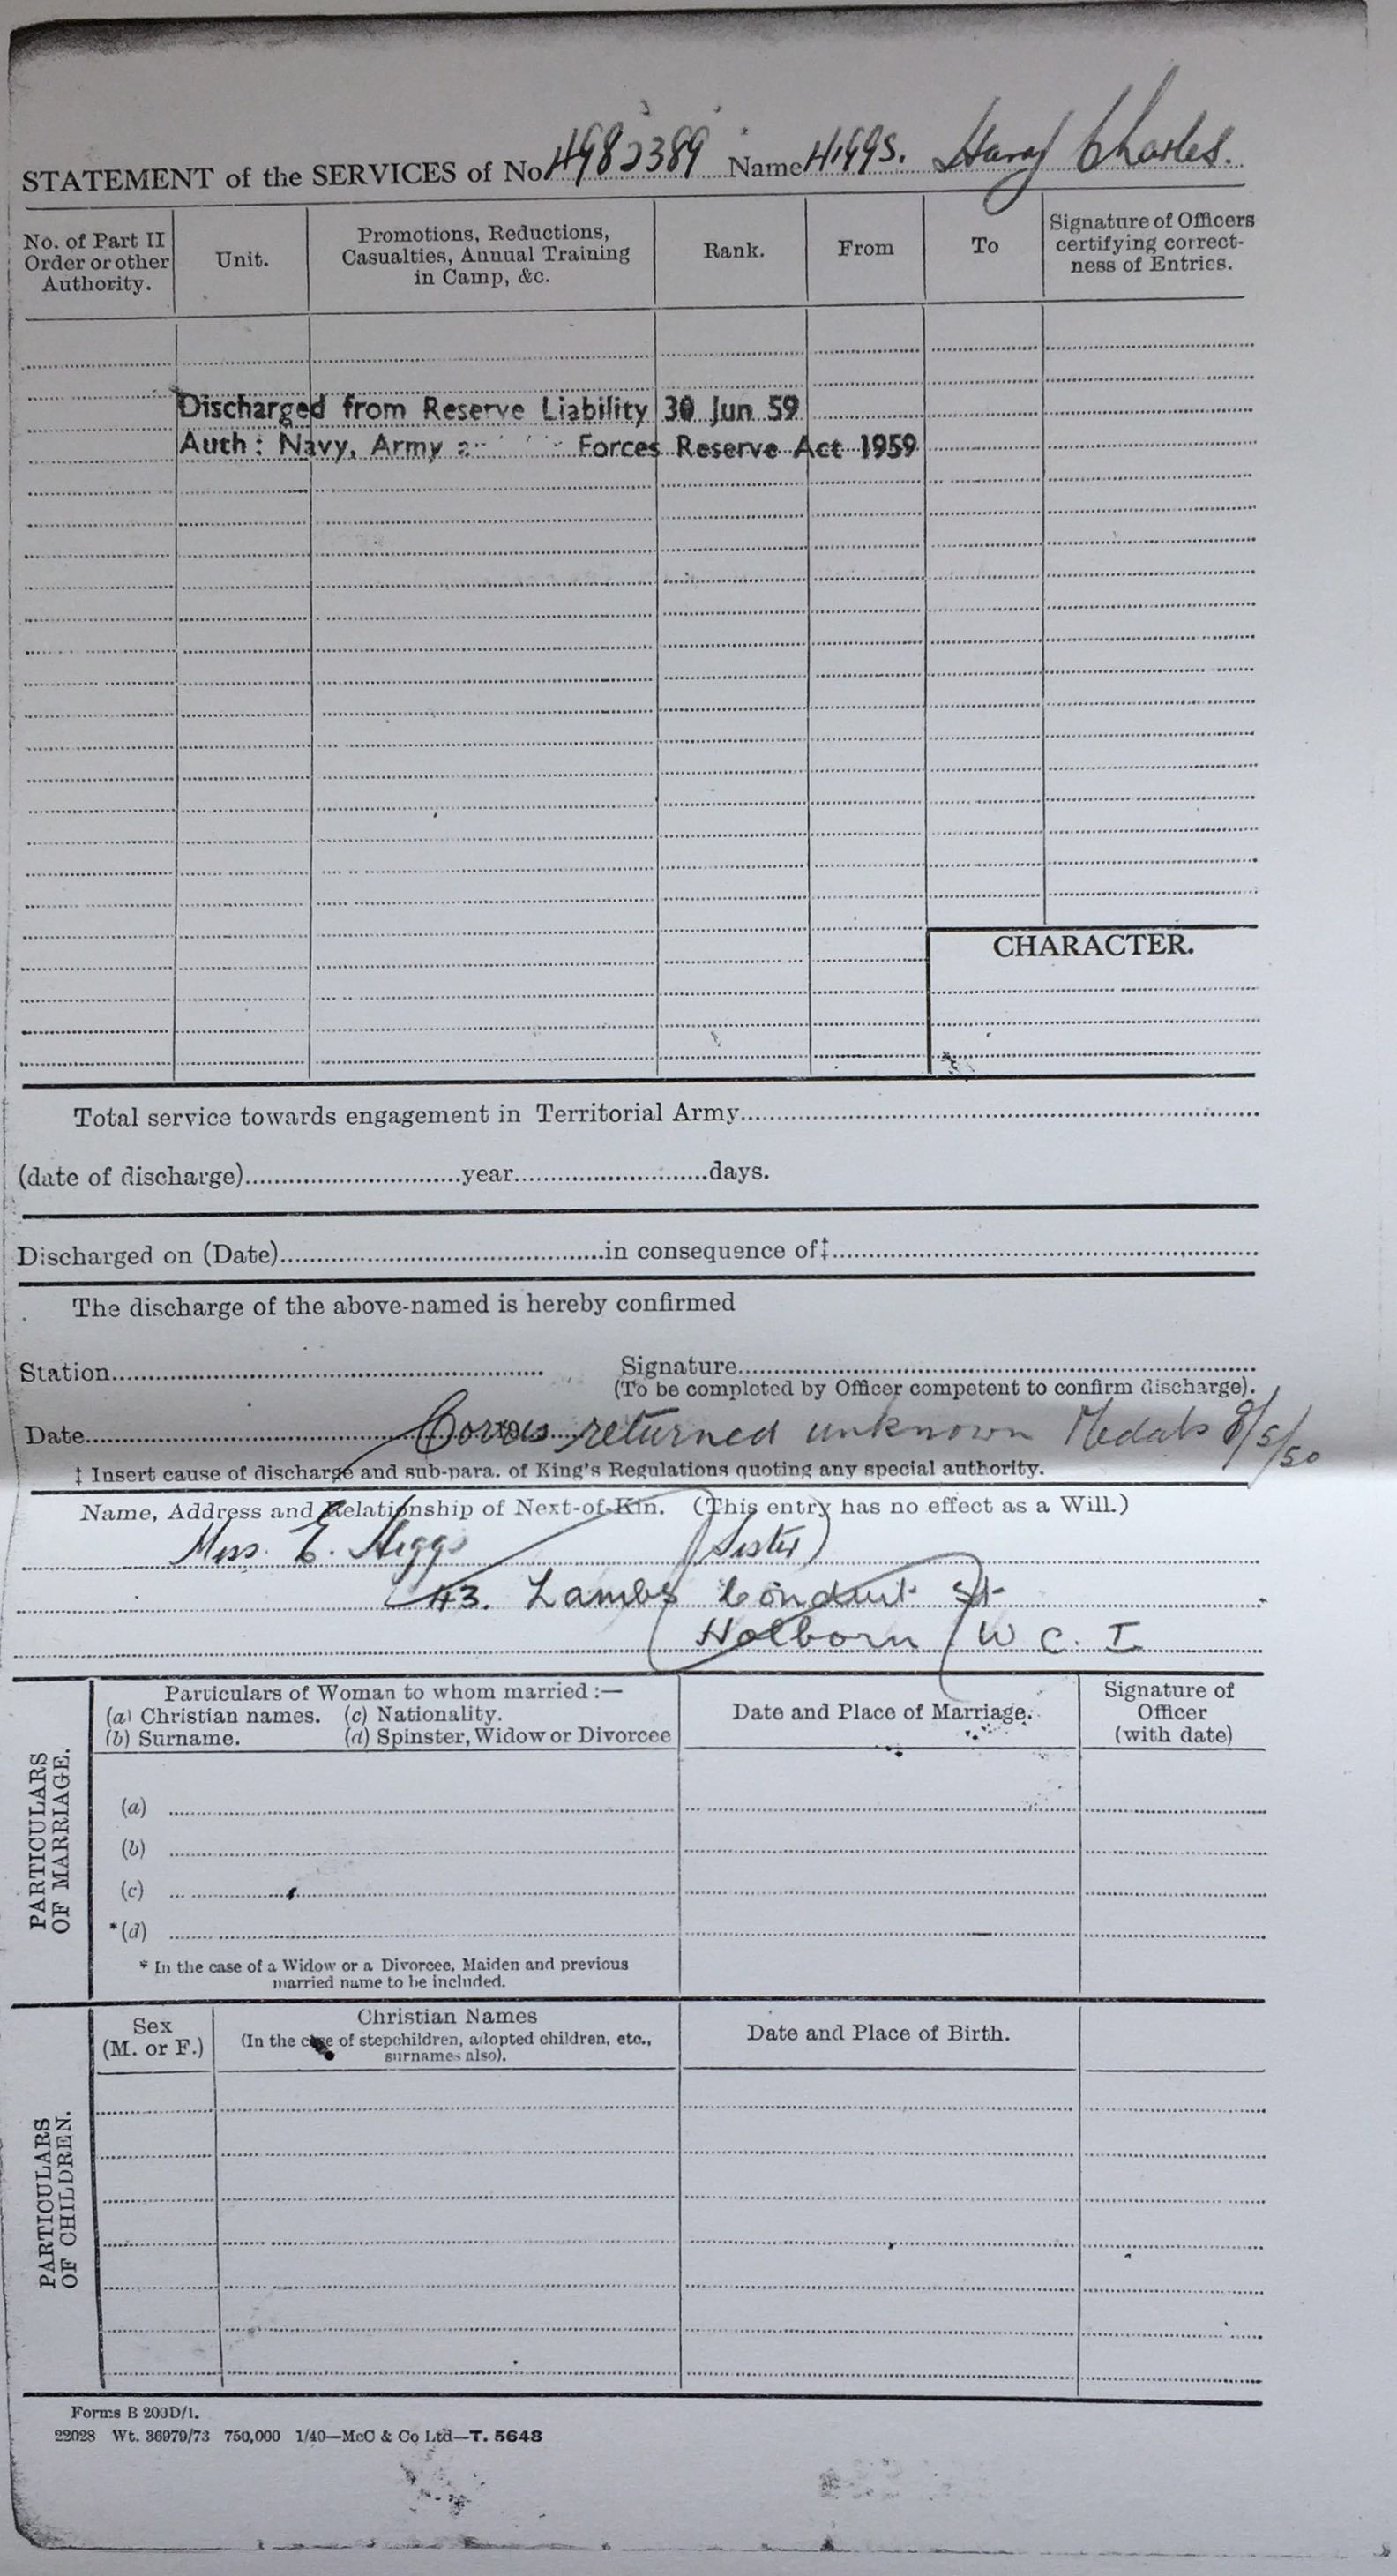 STATEMENT of the SERVICES of No 4982389 Name Higgs. Harry Charles.
No. of Part II Order or other Authority.
Unit.
Promotions, Reductions, Casualties, Annual Training in Camp, &c.
Rank.
From
To
Signature of Officers certifying correct-ness of Entries.
Discharged from Reserve Liability 30 Jun 59
Auth: Navy, Army Forces Reserve Act 1959
CHARACTER.
Total service towards engagement in Territorial Army
(date of discharge) year days.
Discharged on (Date) in consequence of‡
The discharge of the above-named is hereby confirmed
Station Signature
(To be completed by Officer competent to confirm discharge).
Date returned unknown Medals 8/5/50
‡ Insert cause of discharge and sub-para. of King's Regulations quoting any special authority.
Name, Address and Relationship of Next-of-Kin. (This entry has no effect as a Will.)
Miss. E. Higgs (Sister)
43. Lambs Conduit St
Holborn W C. I
PARTICULARS OF MARRIAGE.
Particulars of Woman to whom married :—
(a) Christian names. (c) Nationality.
(b) Surname. (d) Spinster, Widow or Divorcee
Date and Place of Marriage.
Signature of Officer (with date)
(a)
(b)
(c)
*(d)
* In the case of a Widow or a Divorcee, Maiden and previous
married name to be included.
PARTICULARS OF CHILDREN.
Sex (M. or F.)
Christian Names
(In the case of stepchildren, adopted children, etc.,
surnames also).
Date and Place of Birth.
Forms B 200D/1.
22028 Wt. 36979/73 750,000 1/40—McC & Co Ltd—T. 5648